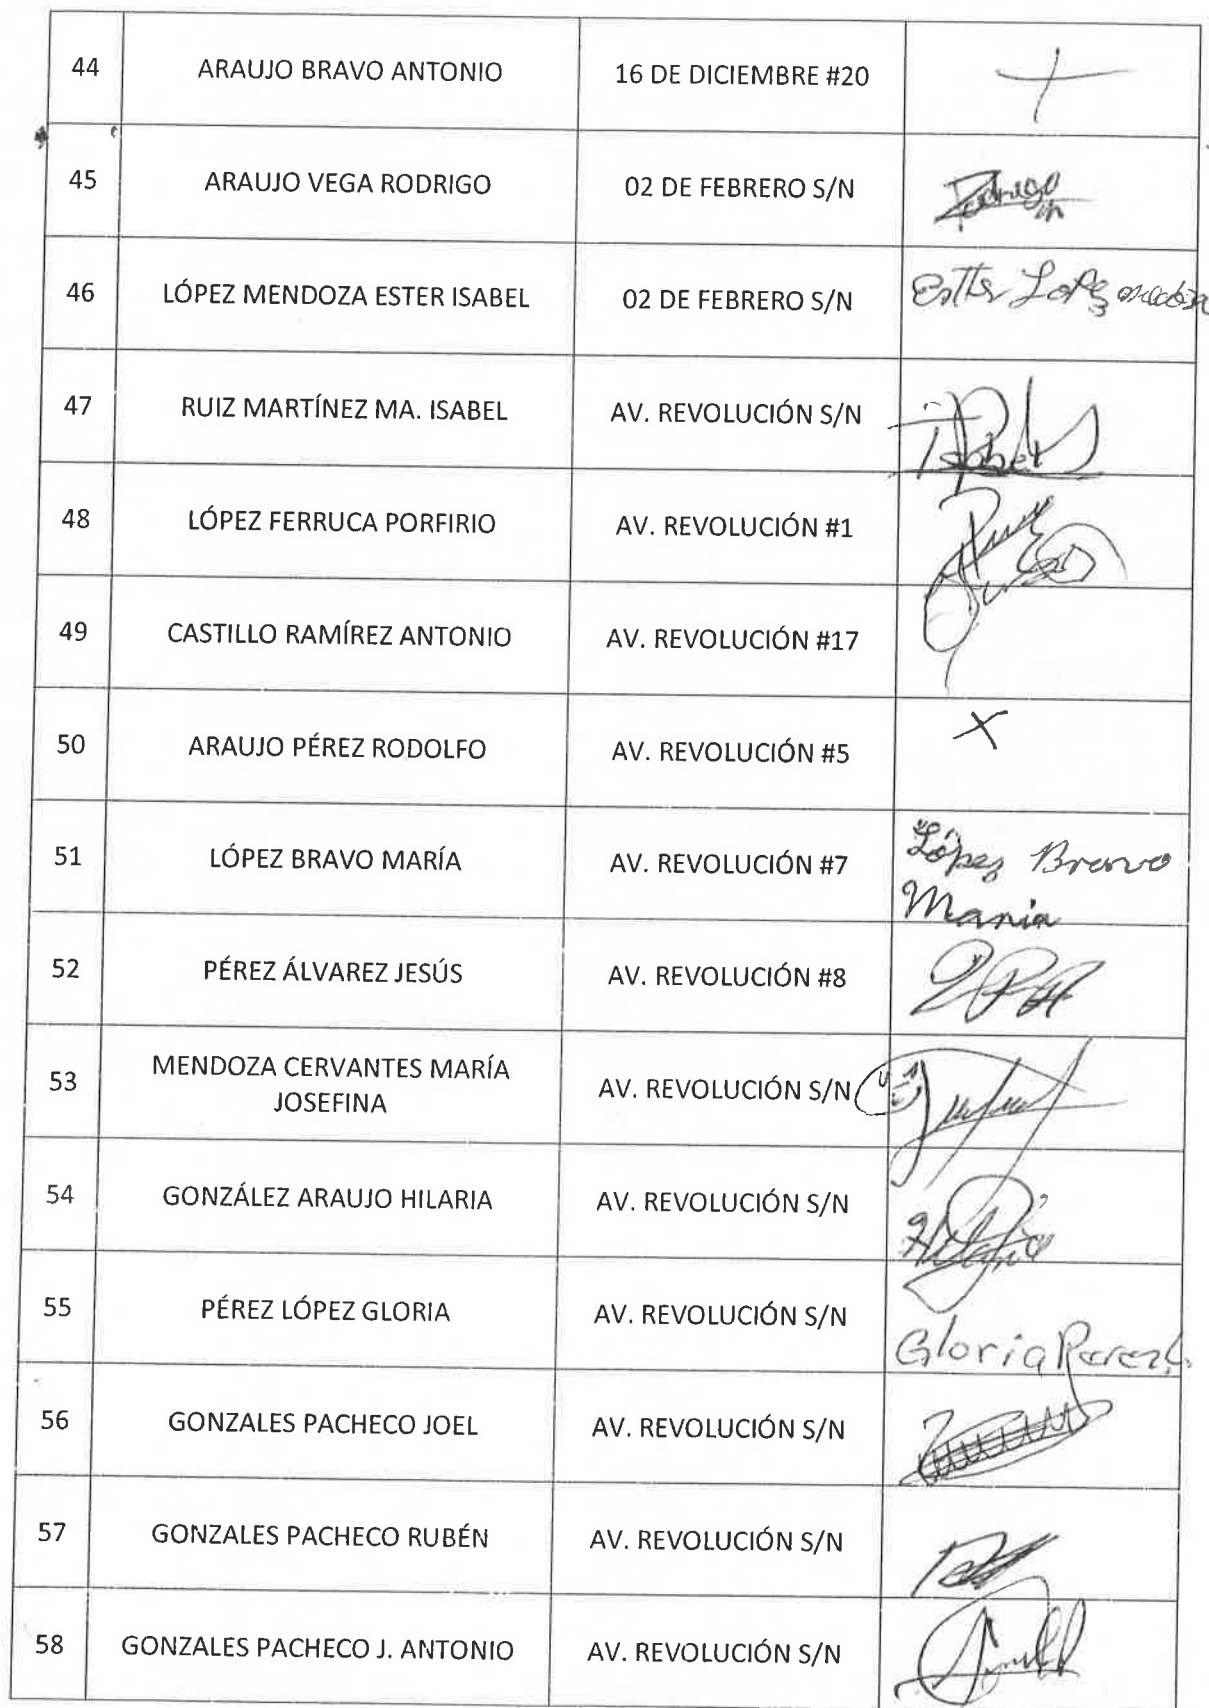 44 ARAUJO BRAVO ANTONIO 16 DE DICIEMBRE #20
45 ARAUJO VEGA RODRIGO 02 DE FEBRERO S/N Rodrigo
46 LÓPEZ MENDOZA ESTER ISABEL 02 DE FEBRERO S/N
47 RUIZ MARTÍNEZ MA. ISABEL AV. REVOLUCIÓN S/N Isabel
48 LÓPEZ FERRUCA PORFIRIO AV. REVOLUCIÓN #1
49 CASTILLO RAMÍREZ ANTONIO AV. REVOLUCIÓN #17
50 ARAUJO PÉREZ RODOLFO AV. REVOLUCIÓN #5 X
51 LÓPEZ BRAVO MARÍA AV. REVOLUCIÓN #7 López Bravo
Maria
52 PÉREZ ÁLVAREZ JESÚS AV. REVOLUCIÓN #8
53 MENDOZA CERVANTES MARÍA
JOSEFINA AV. REVOLUCIÓN S/N
54 GONZÁLEZ ARAUJO HILARIA AV. REVOLUCIÓN S/N Hilaria
55 PÉREZ LÓPEZ GLORIA AV. REVOLUCIÓN S/N Gloria Perez L.
56 GONZALES PACHECO JOEL AV. REVOLUCIÓN S/N
57 GONZALES PACHECO RUBÉN AV. REVOLUCIÓN S/N
58 GONZALES PACHECO J. ANTONIO AV. REVOLUCIÓN S/N